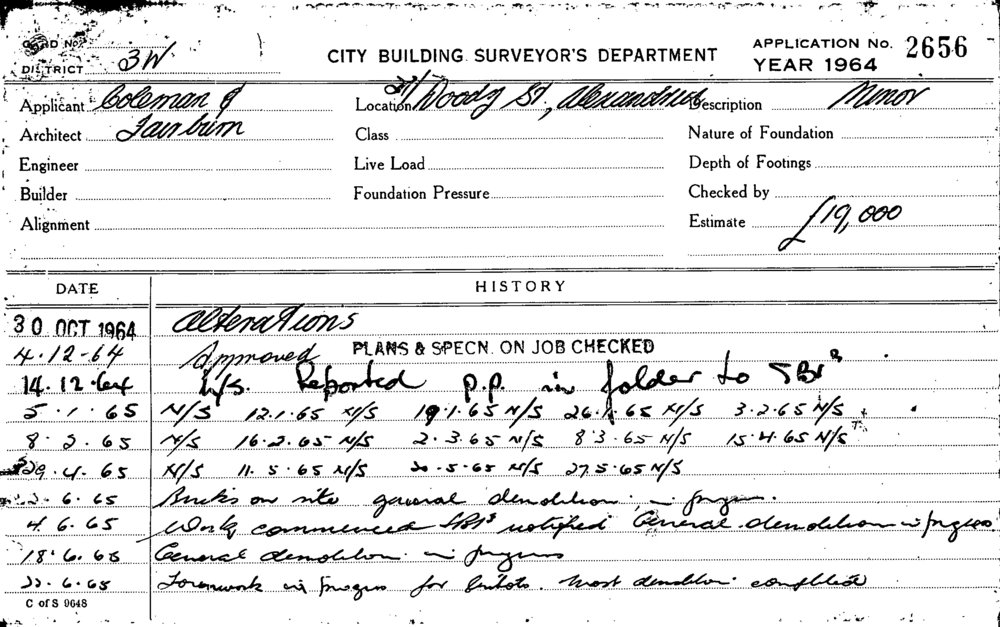 CARD No.
DISTRICT 3W
CITY BUILDING SURVEYOR'S DEPARTMENT
APPLICATION No. 2656
YEAR 1964
Applicant Coleman &
Location Doody St, Alexandria
Description Minor
Architect Fairburn
Class
Nature of Foundation
Engineer
Live Load
Depth of Footings
Builder
Foundation Pressure
Checked by
Alignment
Estimate £19,000
DATE HISTORY
30 OCT 1964 Alterations
4.12-64 Approved PLANS & SPECN. ON JOB CHECKED
14.12.64 N/S. Reported P.P. in folder to SBI
5.1.65 N/S 12.1.65 N/S 19.1.65 N/S 26.1.65 N/S 3.2.65 N/S
8.2.65 N/S 16.2.65 N/S 2.3.65 N/S 8.3.65 N/S 15.4.65 N/S
29.4.65 N/S 11.5.65 N/S 20.5.65 N/S 27.5.65 N/S
2.6.65 Bricks on site general demolition in progress.
4.6.65 Work commenced notified General demolition in progress
18.6.65 General demolition in progress
22.6.65 Formwork in progress for lintols. Most demolition completed
C of S 9648